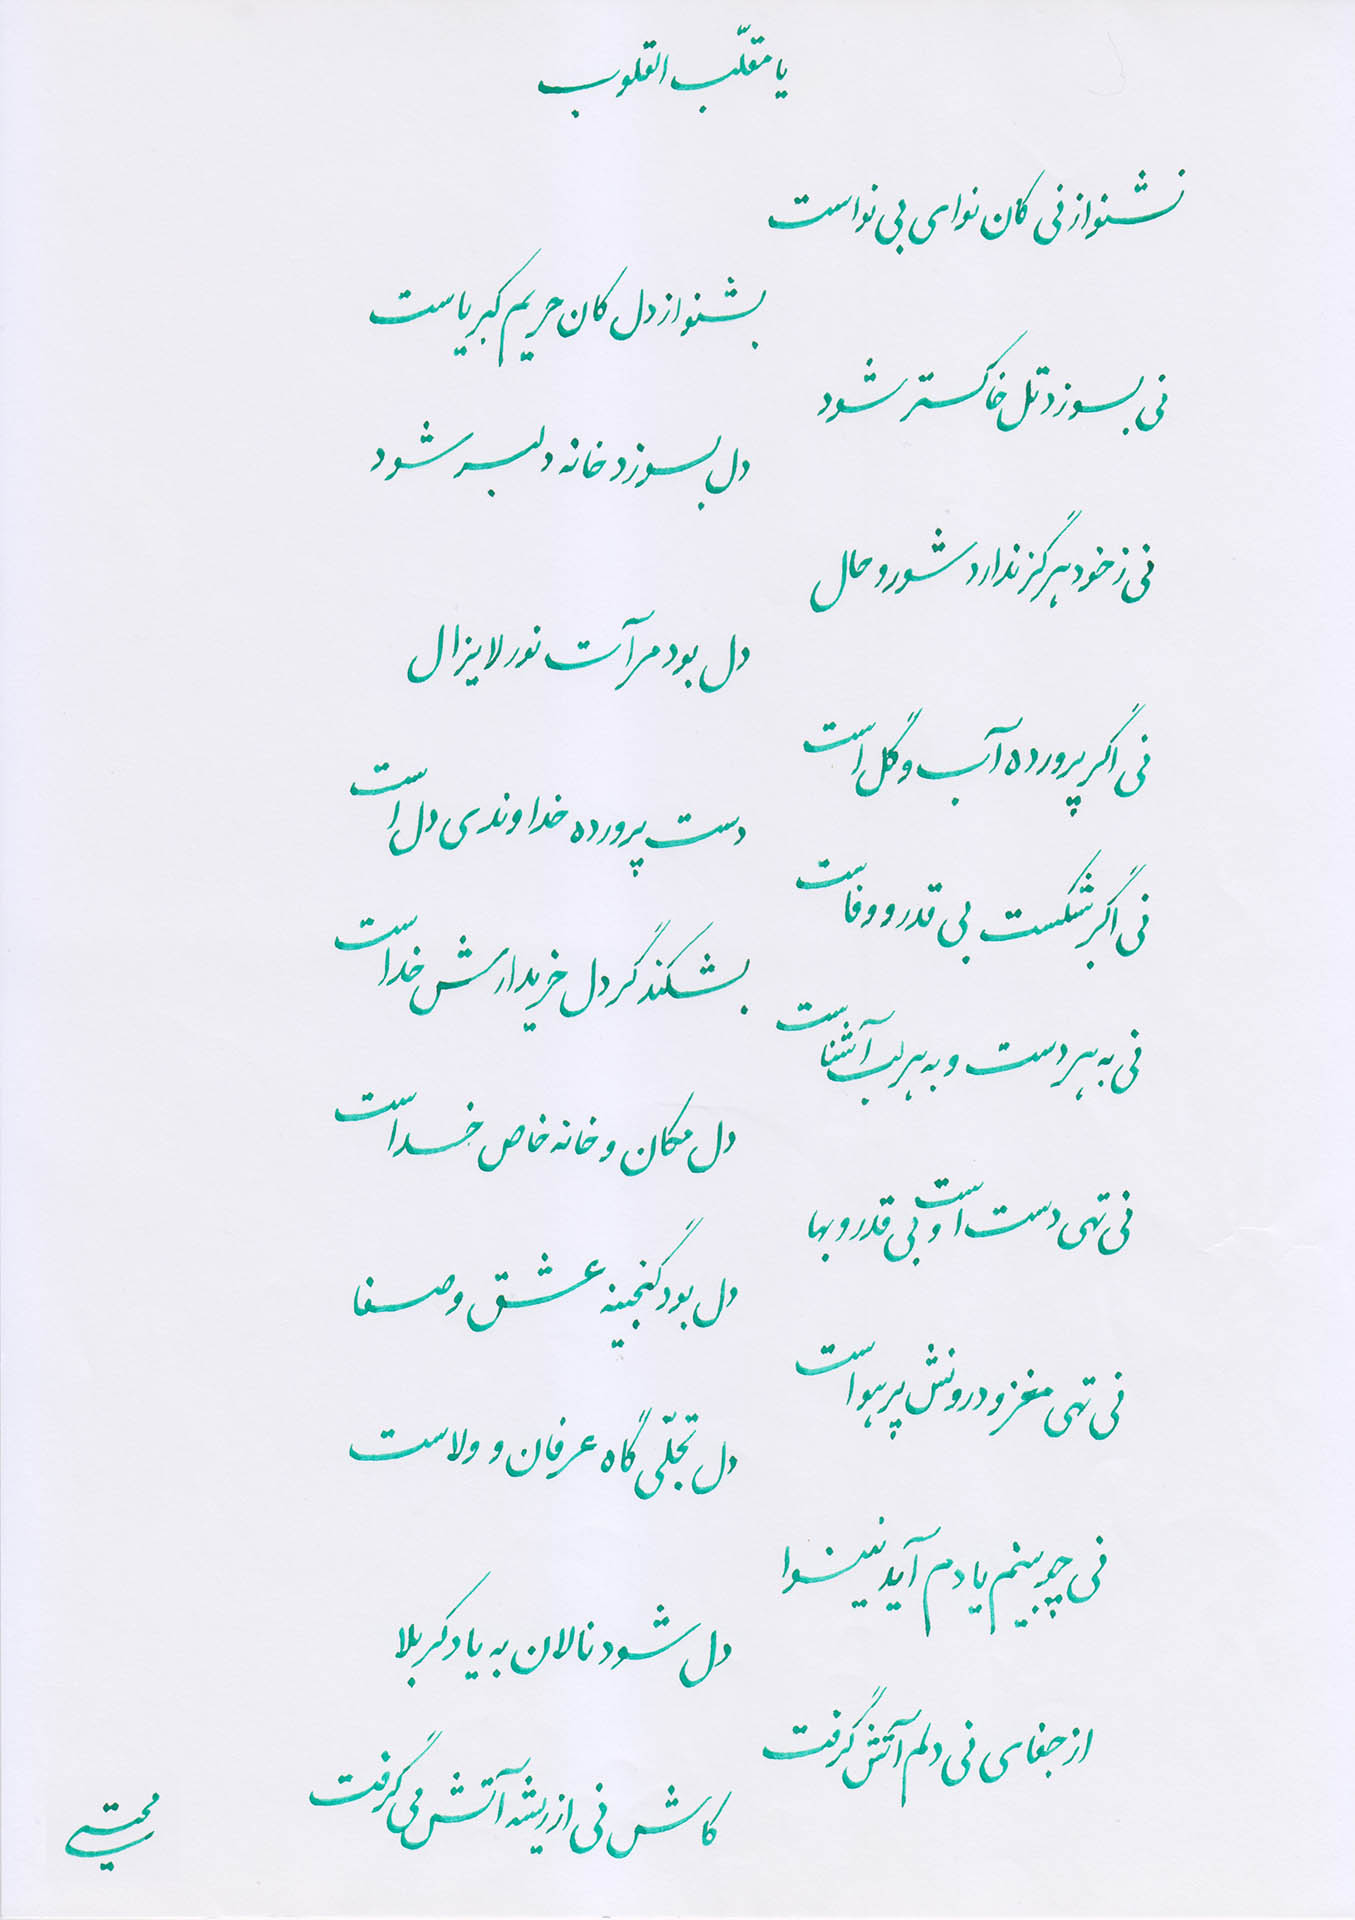 یا مقلّب القلوب
نشنو از نی کان نوای بی نواست
بشنو از دل کان حریم کبریاست
نی بسوزد تل خاکستر شود
دل بسوزد خانه دلبر شود
نی ز خود هرگز ندارد شور و حال
دل بود مرآت نور لایزال
نی اگر پرورده آب و گل است
دست پرورده خداوندی دل است
نی اگر بشکست بی قدر و وفاست
بشکند گر دل خریدارش خداست
نی به هر دست و به هر لب آشناست
دل مکان و خانه خاص خداست
نی تهی دست است و بی قدر و بها
دل بود گنجینه عشق و صفا
نی تهی مغز و درونش پر هواست
دل تجلّی گاه عرفان و ولاست
نی چو بینم یادم آید نینوا
دل شود نالان به یاد کربلا
از جفای نی دلم آتش گرفت
کاش نی از ریشه آتش می گرفت
مجتبی